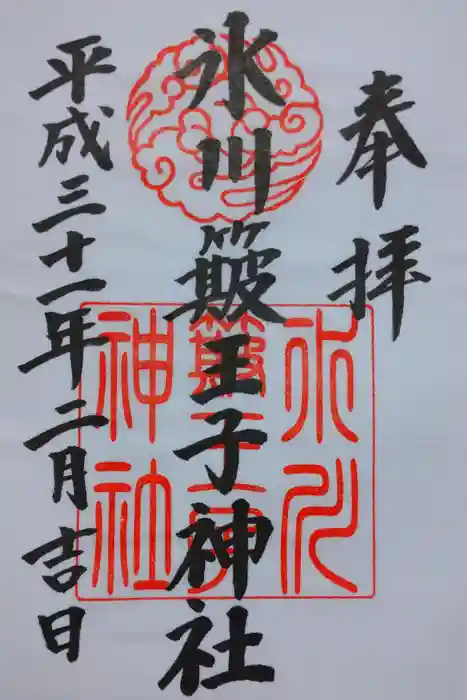 奉拝
氷川簸王子神社
平成三十一年二月吉日
氷川
簸王子
神社